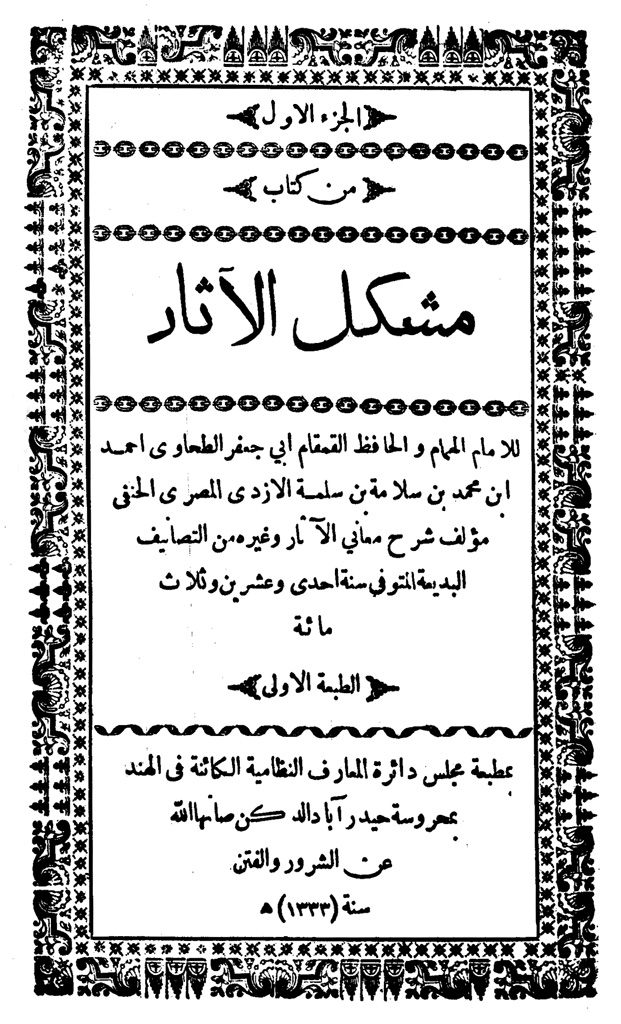 الجزء الاول
من كتاب
مشكل الآثار
للامام الهمام و الحافظ القمقام ابي جعفر الطحاوى احمد
ابن محمد بن سلامة بن سلمة الازدى المصرى الحنفى
مؤلف شرح معاني الآثار وغيره من التصانيف
البديعة المتوفي سنة احدى وعشرين وثلاث
مائة
الطبعة الاولى
بمطبعة مجلس دائرة المعارف النظامية الكائنة فى الهند
بمحروسة حيدرآباد الدكن صانها الله
عن الشرور والفتن
سنة (١٣٣٣) ھ